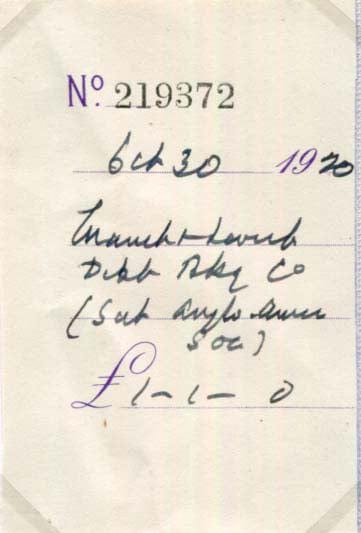 No. 219372
Oct 30 1920
Manch & Liverp
Distt Bkg Co
(Sub Anglo-Amer
Soc)
£ 1-1-0